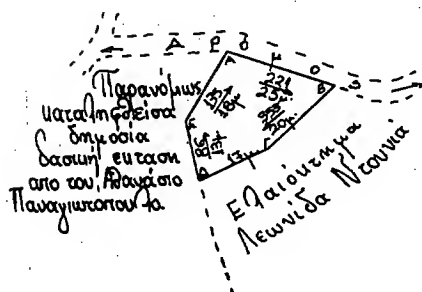 Δ ρ ό μ ο ς
Α
Β
Παρανόμως
καταληφθείσα
δημόσια
δασική εκταση
απο τον Αθανάσιο
Παναγιωτοπουλο.
221
25μ.
20μ.
Γ
Ελαιόκτημα
Λεωνίδα Ντουνιά